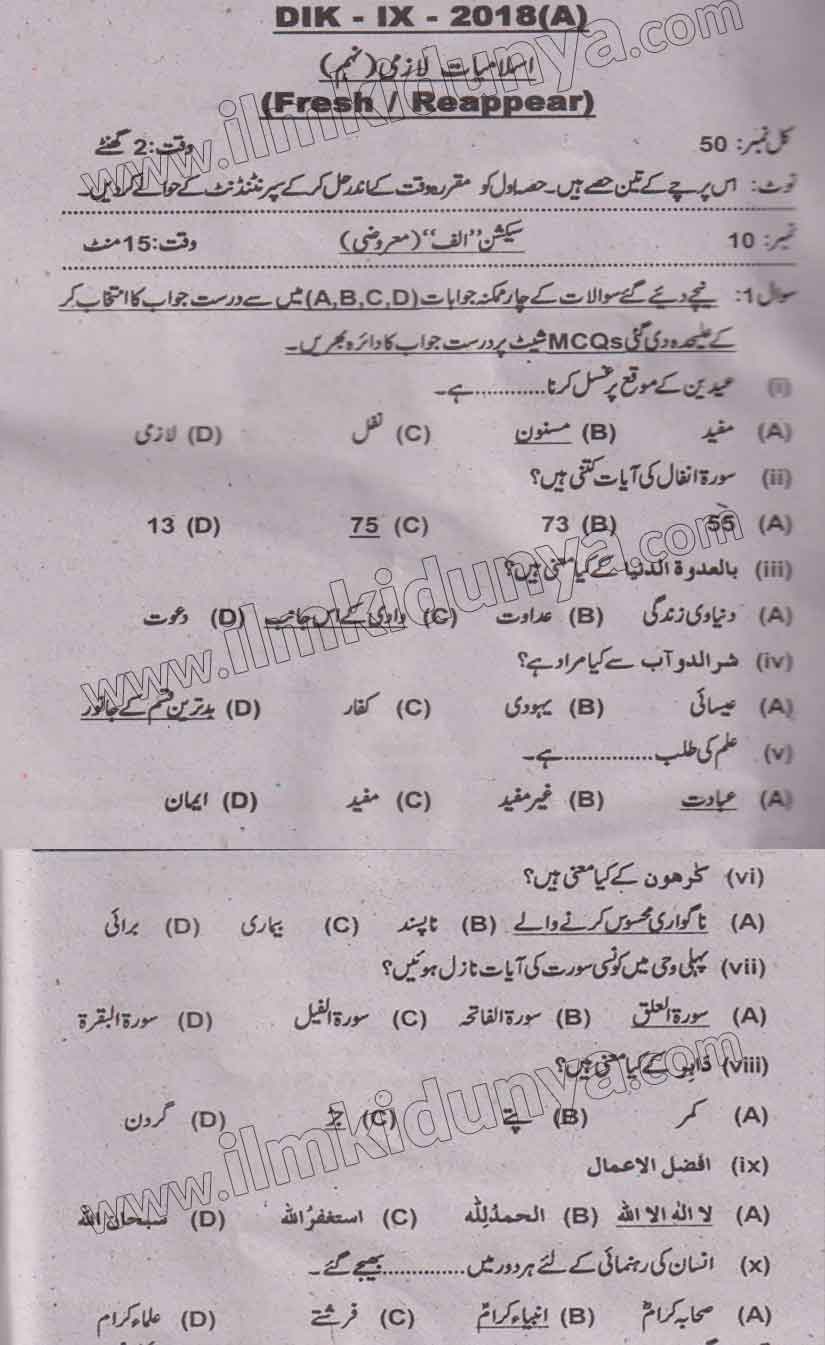 DIK - IX - 2018(A)
اسلامیات لازمی (نہم)
(Fresh / Reappear)
کل نمبر: 50 وقت: 2 گھنٹے
نوٹ: اس پرچے کے تین حصے ہیں۔ حصہ اول کو مقررہ وقت کے اندر حل کر کے سپرنٹنڈنٹ کے حوالے کر دیں۔
نمبر: 10 سیکشن "الف" (معروضی) وقت: 15 منٹ
سوال 1: نیچے دئیے گئے سوالات کے چار ممکنہ جوابات (A,B,C,D) میں سے درست جواب کا انتخاب کر
کے علیحدہ دی گئی MCQs شیٹ پر درست جواب کا دائرہ بھریں۔
(i) عیدین کے موقع پر غسل کرنا ............ ہے۔
(A) مفید (B) مسنون (C) نفل (D) لازمی
(ii) سورۃ انفال کی آیات کتنی ہیں؟
(A) 55 (B) 73 (C) 75 (D) 13
(iii) بالعدوۃ الدنیا کے کیا معنی ہیں؟
(A) دنیاوی زندگی (B) عداوت (C) وادی کے اس جانب (D) دعوت
(iv) شر الدوآب سے کیا مراد ہے؟
(A) عیسائی (B) یہودی (C) کفار (D) بدترین قسم کے جانور
(v) علم کی طلب ............... ہے۔
(A) عبادت (B) غیر مفید (C) مفید (D) ایمان
(vi) کٰرھون کے کیا معنی ہیں؟
(A) ناگواری محسوس کرنے والے (B) ناپسند (C) بیماری (D) برائی
(vii) پہلی وحی میں کونسی سورت کی آیات نازل ہوئیں؟
(A) سورۃ العلق (B) سورۃ الفاتحہ (C) سورۃ الفیل (D) سورۃ البقرۃ
(viii) دَابِر کے کیا معنی ہیں؟
(A) کمر (B) پتے (C) جڑ (D) گردن
(ix) افضل الاعمال
(A) لا الٰہ الا اللہ (B) الحمدُ لِلّٰہ (C) استغفرُ اللہ (D) سبحان اللہ
(x) انسان کی رہنمائی کے لئے ہر دور میں .............. بھیجے گئے۔
(A) صحابہ کرامؓ (B) انبیاء کرامؑ (C) فرشتے (D) علماء کرام
www.ilmkidunya.com
www.ilmkidunya.com
www.ilmkidunya.com